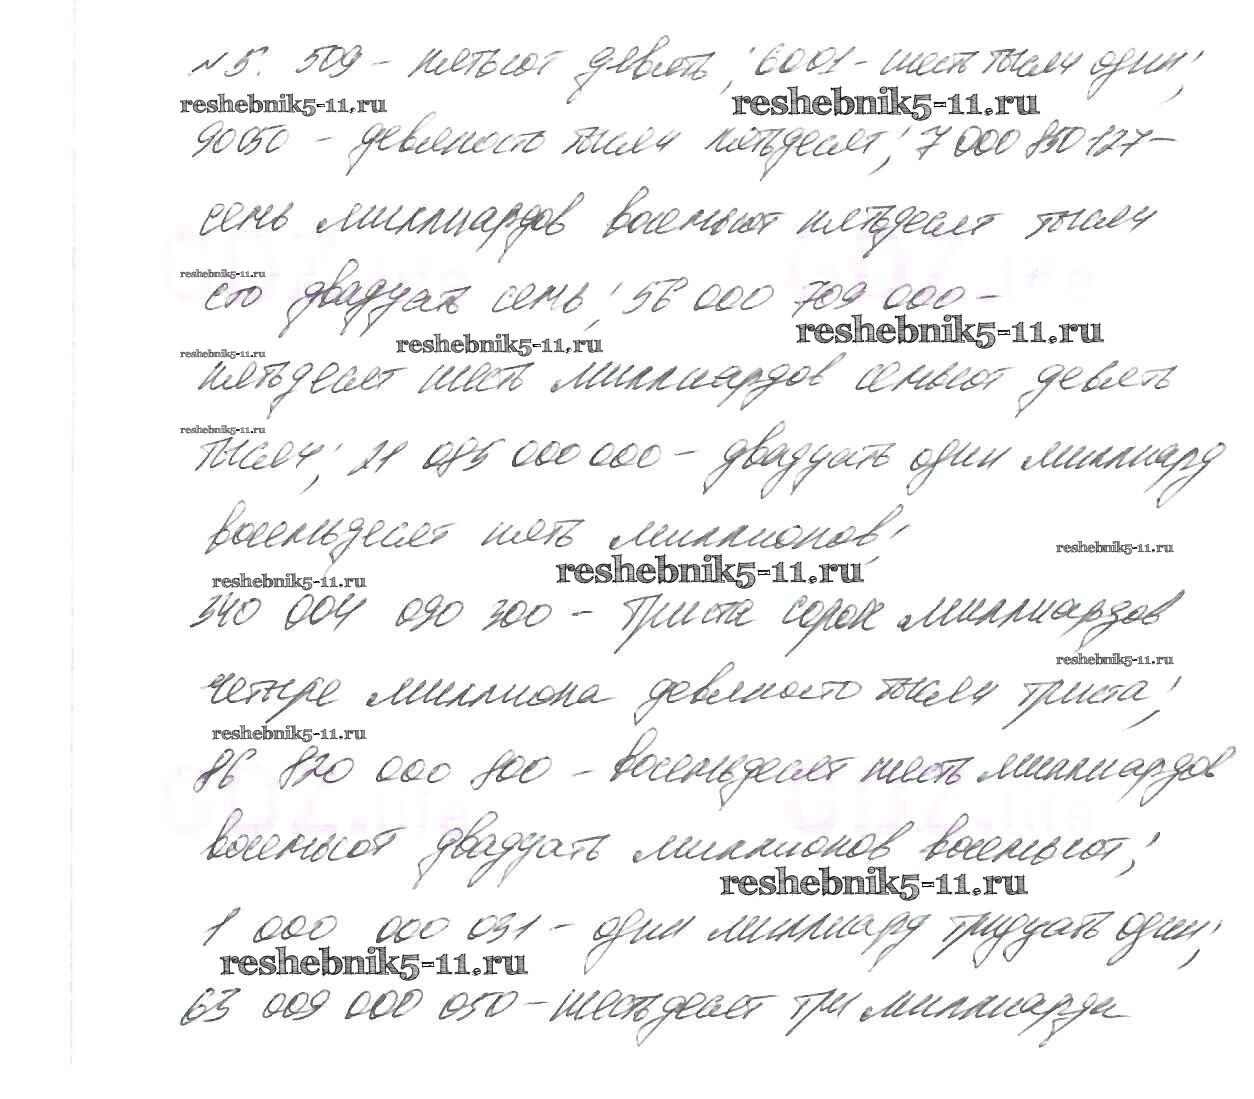 №5. 509 - пятьсот девять; 6001 - шесть тысяч один;
reshebnik5-11.ru reshebnik5-11.ru
90050 - девяносто тысяч пятьдесят; 7 000 850 127 -
семь миллиардов восемьсот пятьдесят тысяч
reshebnik5-11.ru
сто двадцать семь; 56 000 709 000 -
reshebnik5-11.ru reshebnik5-11.ru
reshebnik5-11.ru
пятьдесят шесть миллиардов семьсот девять
reshebnik5-11.ru
тысяч; 21 085 000 000 - двадцать один миллиард
восемьдесят пять миллионов;
reshebnik5-11.ru
reshebnik5-11.ru reshebnik5-11.ru
340 004 090 300 - триста сорок миллиардов
reshebnik5-11.ru
четыре миллиона девяносто тысяч триста;
reshebnik5-11.ru
86 820 000 800 - восемьдесят шесть миллиардов
восемьсот двадцать миллионов восемьсот;
reshebnik5-11.ru
1 000 000 031 - один миллиард тридцать один;
reshebnik5-11.ru
63 009 000 050 - шестьдесят три миллиарда